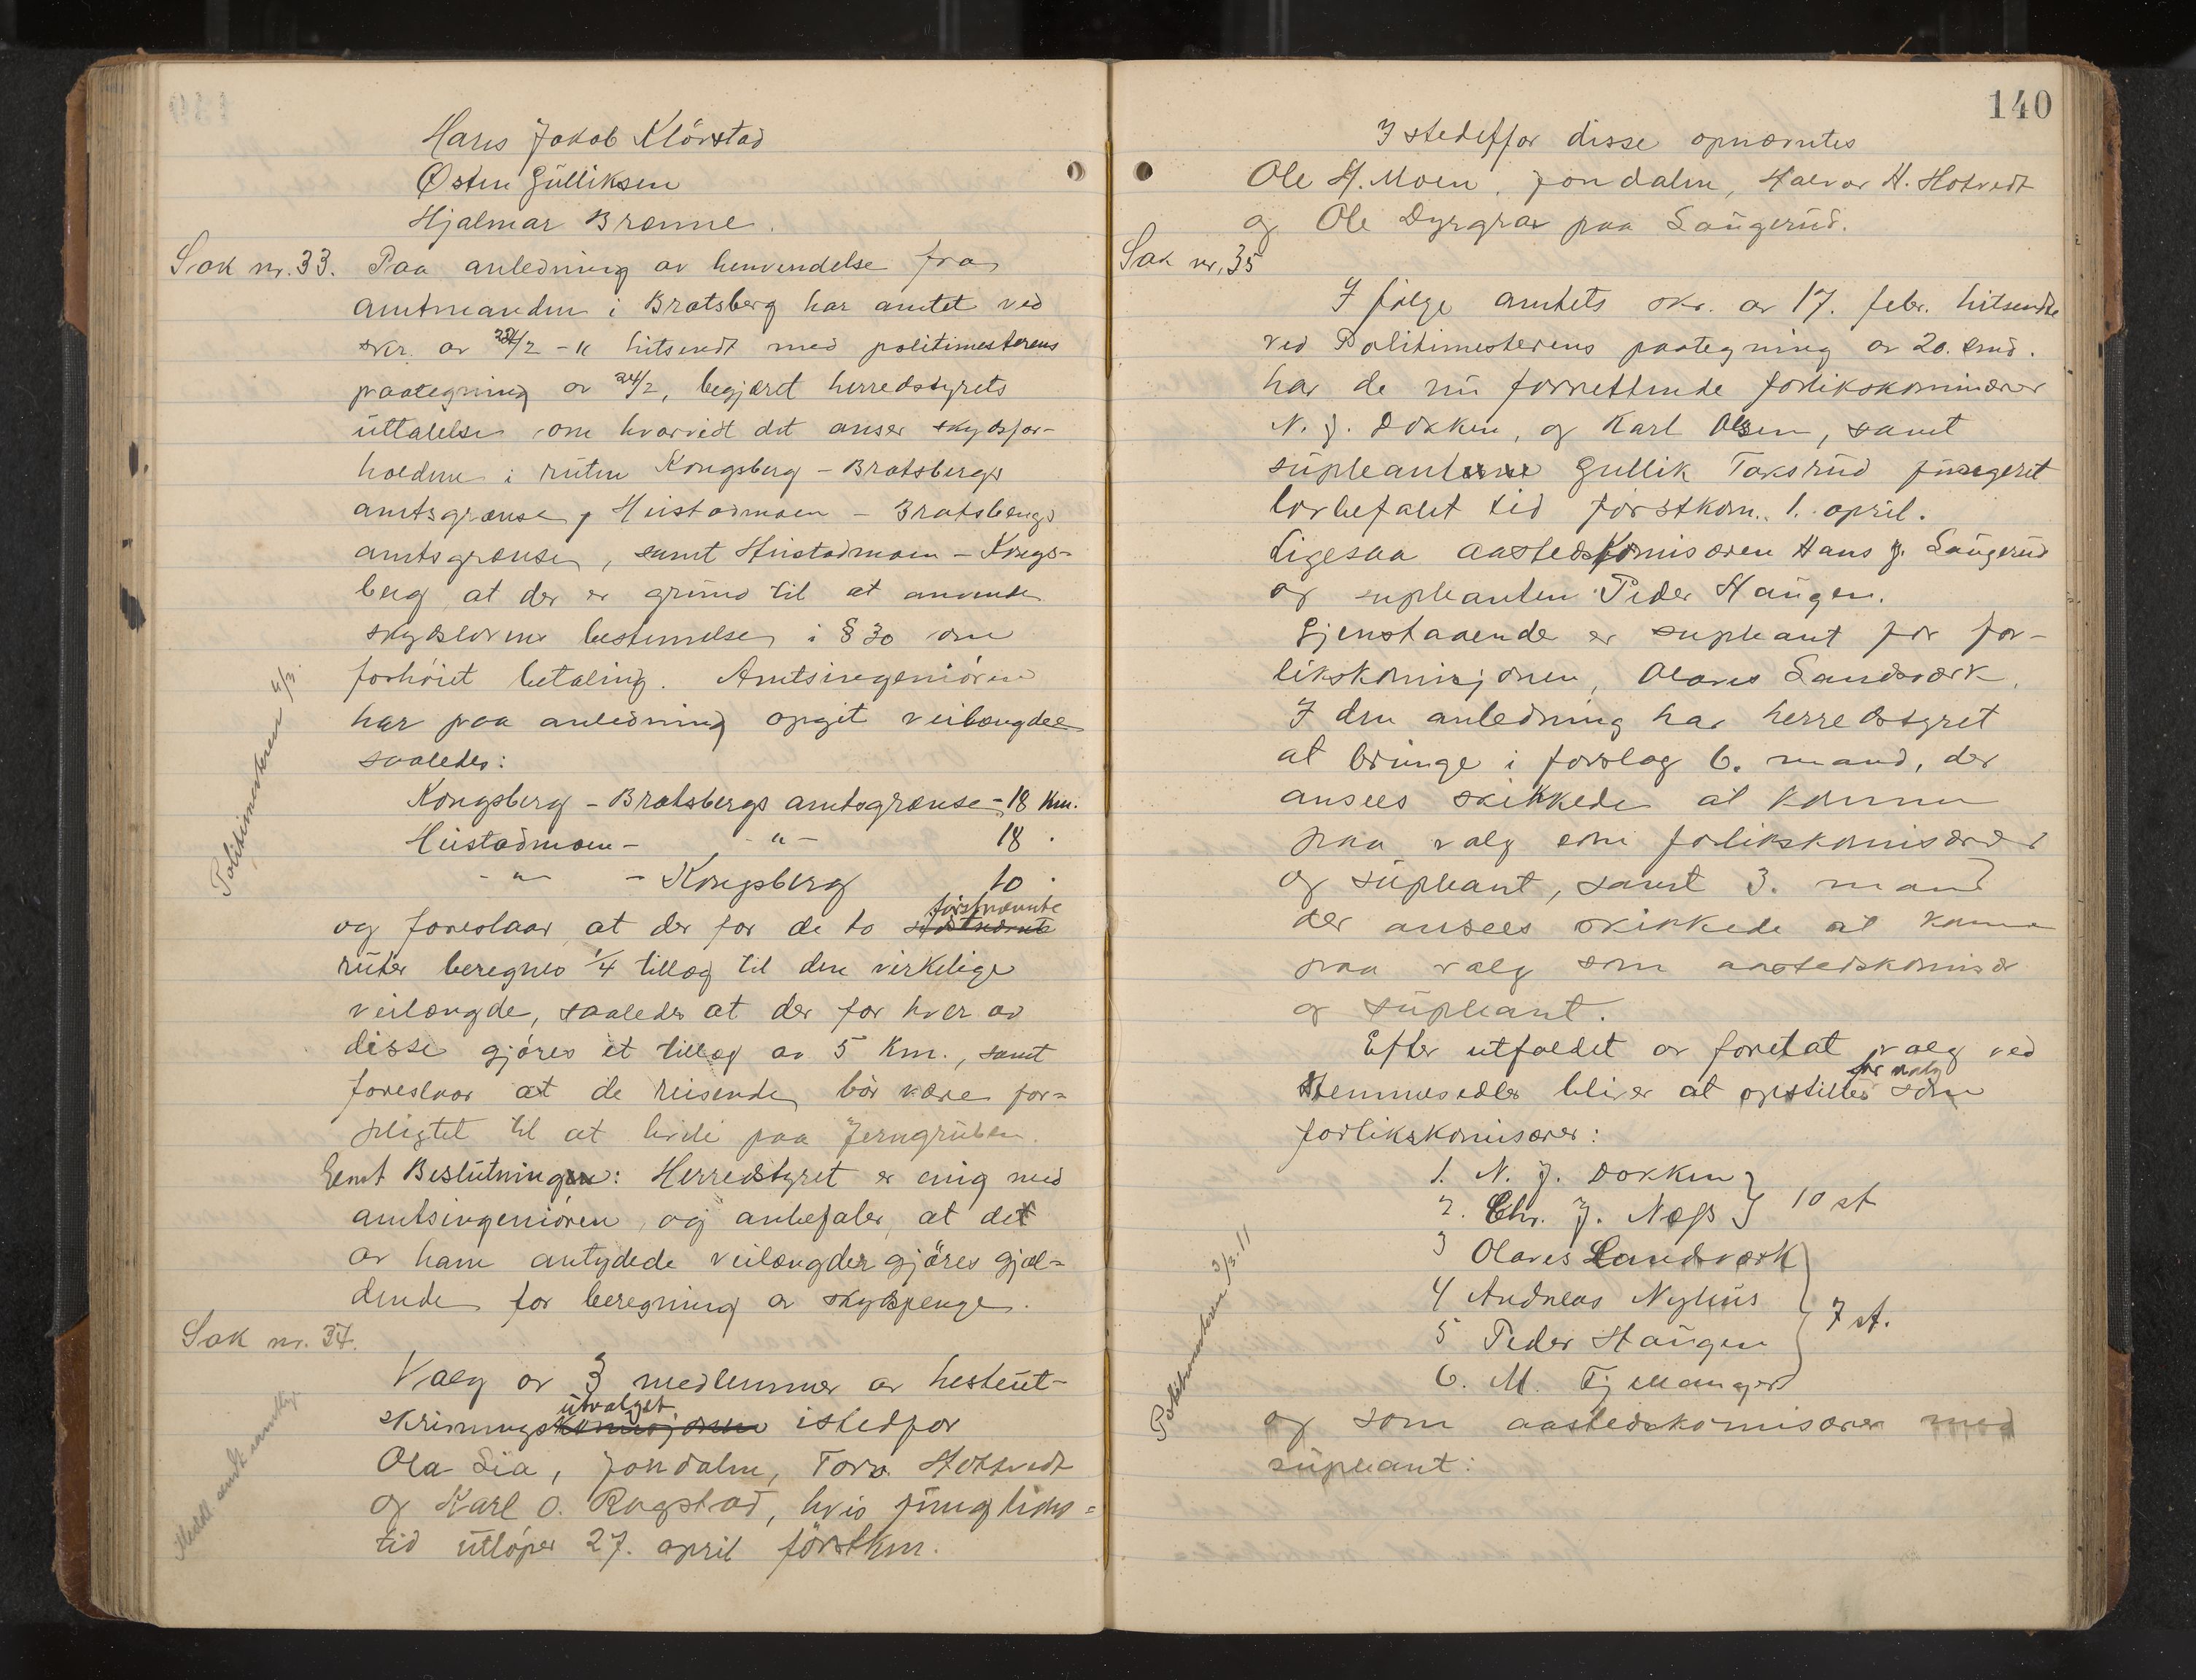 Hans Jakob Klörstad
Østen Gulliksen
Hjalmar Brænne.
Sak nr. 33. Paa anledning av henvendelse fra
amtmanden i Bratsberg har amtet ved
skr. av 22/2 - 11 hitsendt med politimesterens
paategning av 24/2, begjæret herredstyrets
uttalelse om hvorvidt det anser skydsfor-
holdene i ruten Kongsberg - Bratsbergs
amtsgrænse, Hustadmoen - Bratsbergs
amtsgrænse, samt Hustadmoen - Kongs-
berg, at der er grund til at anvende
skydslovens bestemelse i § 30 om
forhöiet betaling. Amtsingeniören
har paa anledning opgit veilængden
saaledes:
Kongsberg - Bratsbergs amtsgrænse - 18 km.
Hustadmoen - " - 18 .
- " - - Kongsberg 10 .
og foreslaar at der for de to sidstnævnte förstnævnte
ruter beregnes 1/4 tillæg til den virkelige
veilængde, saaledes at der for hver av
disse gjöres et tillæg av 5 km., samt
foreslaar at de reisende bör være for-
pligtet til at bede paa Jerngruben.
Eenst Beslutning: Herredstyret er enig med
amtsingeniören, og anbefaler, at det
av ham antydede veilængder gjöres gjæl-
dende for beregning av skydspenge.
Politimesteren 4/3.
Sak nr. 34.
Valg av 3 medlemmer av hesteut-
skrivningskomisjonen utvalget istedfor
Ola Lia, Jondalen, Torv. Hottvedt
og Karl O. Rogstad, hvis fungtions-
tid utlöper 27. april förstkm.
140
I stedetfor disse opnævntes
Ole H. Moen, Jondalen, Halvor H. Hotvedt
og Ole Dyrgrav paa Saugerud.
Sak nr. 35
I fölge amtets skr. av 17. febr. hitsendt
ved Politimesterens paategning av 20. s.md.
har de nu forrettende forlikskomisærer
N. J. Dokken, og Karl Olsen, samt
supleanterne Gullik Taksrud fungeret
lovbefalet tid förstkom. 1. april.
Ligesaa aastedskomisæren Hans J. Saugerud
og supleanten Peder Haugen.
Gjenstaaende er supleant for for-
likskomisjonen, Olaves Landsværk.
I den anledning har herredstyret
at bringe i forslag 6. mand, der
ansees skikkede at komme
paa valg som forlikskomisærer
og supleant, samt 3. mand
der ansees skikkede at komme
paa valg som aastedskomisær
og supleant.
Efter utfaldet av foretat valg ved
stemmesedler bliver at opstilles for valg som
forlikskomisærer:
1. N. J. Dokken
2. Chr. J. Næss } 10 st
3 Olaves Landsværk
4 Andreas Nyhus
5 Peder Haugen } 7 st.
6. M. Fjellanger
Politimesteren 3/3. 11
og som aastedskomisærer med
supleant: